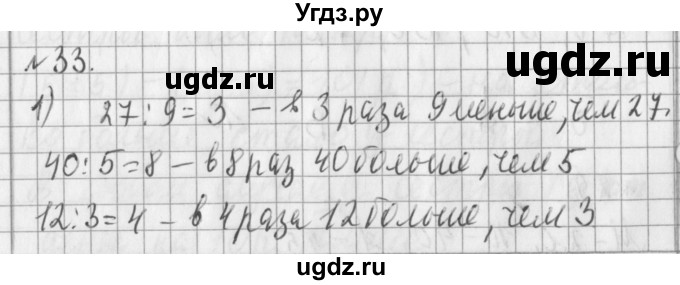 Угдз.ру
№33.
ugdz.ru ugdz.ru
1) 27:9=3 – в 3 раза 9 меньше, чем 27.
40:5=8 – в 8 раз 40 больше, чем 5
12:3=4 – в 4 раза 12 больше, чем 3
ugdz.ru ugdz.ru
ugdz.ru